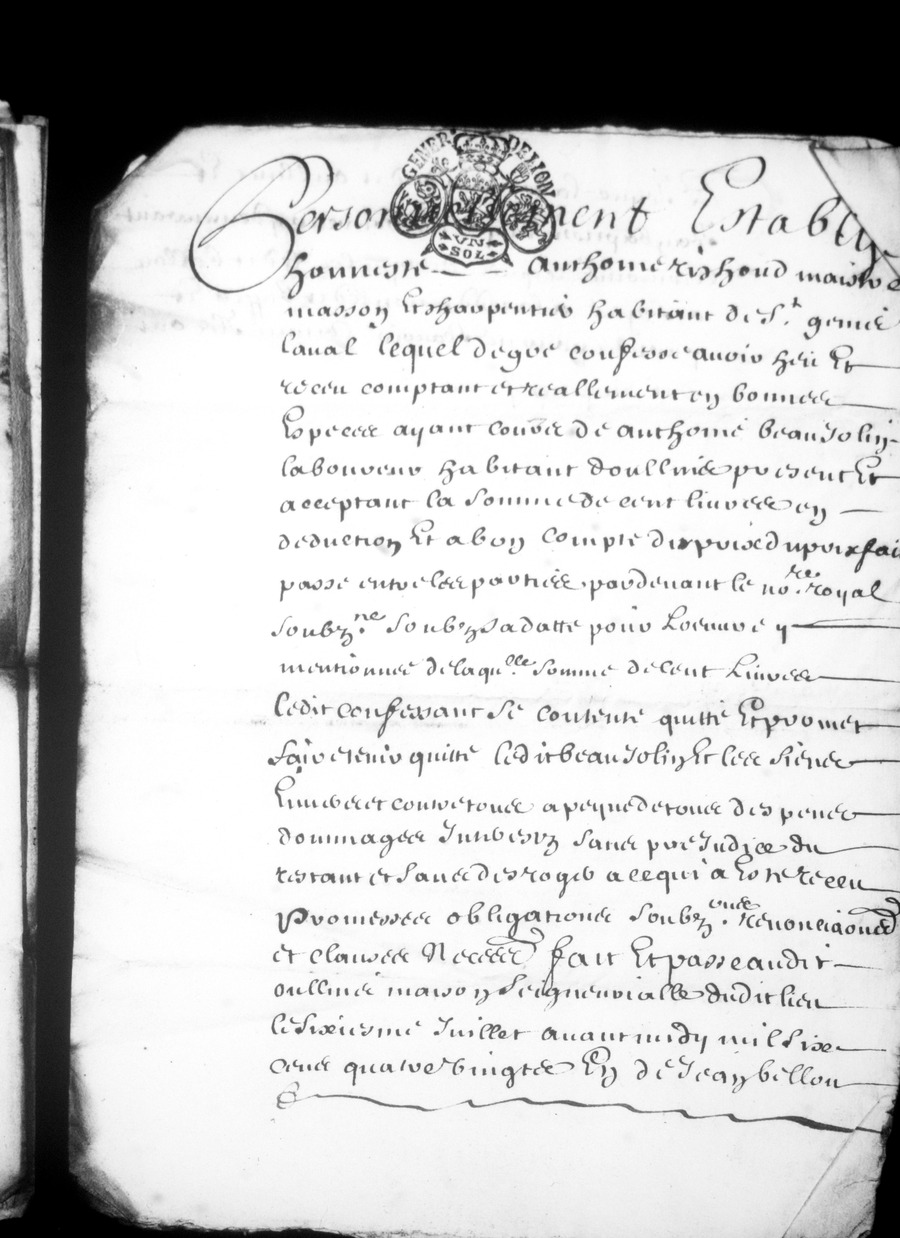 GENER DE LION
VN SOL
Personnellement Estably
honneste anthoine rishoud maistre
masson Et sharpentier habitant de St genis
laual lequel de gré confesse auoir heu Et
receu comptant et reallement en bonnes
Especes ayant cours de anthoine beaujolin
laboureur habitant doullins present Et
acceptant la somme de cent liures en
deduction Et a bon compte du prix du prixfai
passé entre les parties pardeuant le nore royal
soubzne soubz sa datte pour Loeuure y
mentionnée de laquelle somme de cent Liures
ledit confessant se contente quitte Et promet
faire tenir quitte ledit beaujolin Et les siens
Enuers et contre tous a peyne de tous despens
dommages Interestz sans preJudice du
restant et sans desroger a ce qui a Esté receu
Promesses obligations soubzons Renonciaons
et clauses Neceres fait Et passé audit
oullins maison seigneurialle dudit lieu
le sixiesme Juillet auant midy mil six
cens quatre vingts En de Jean bellou